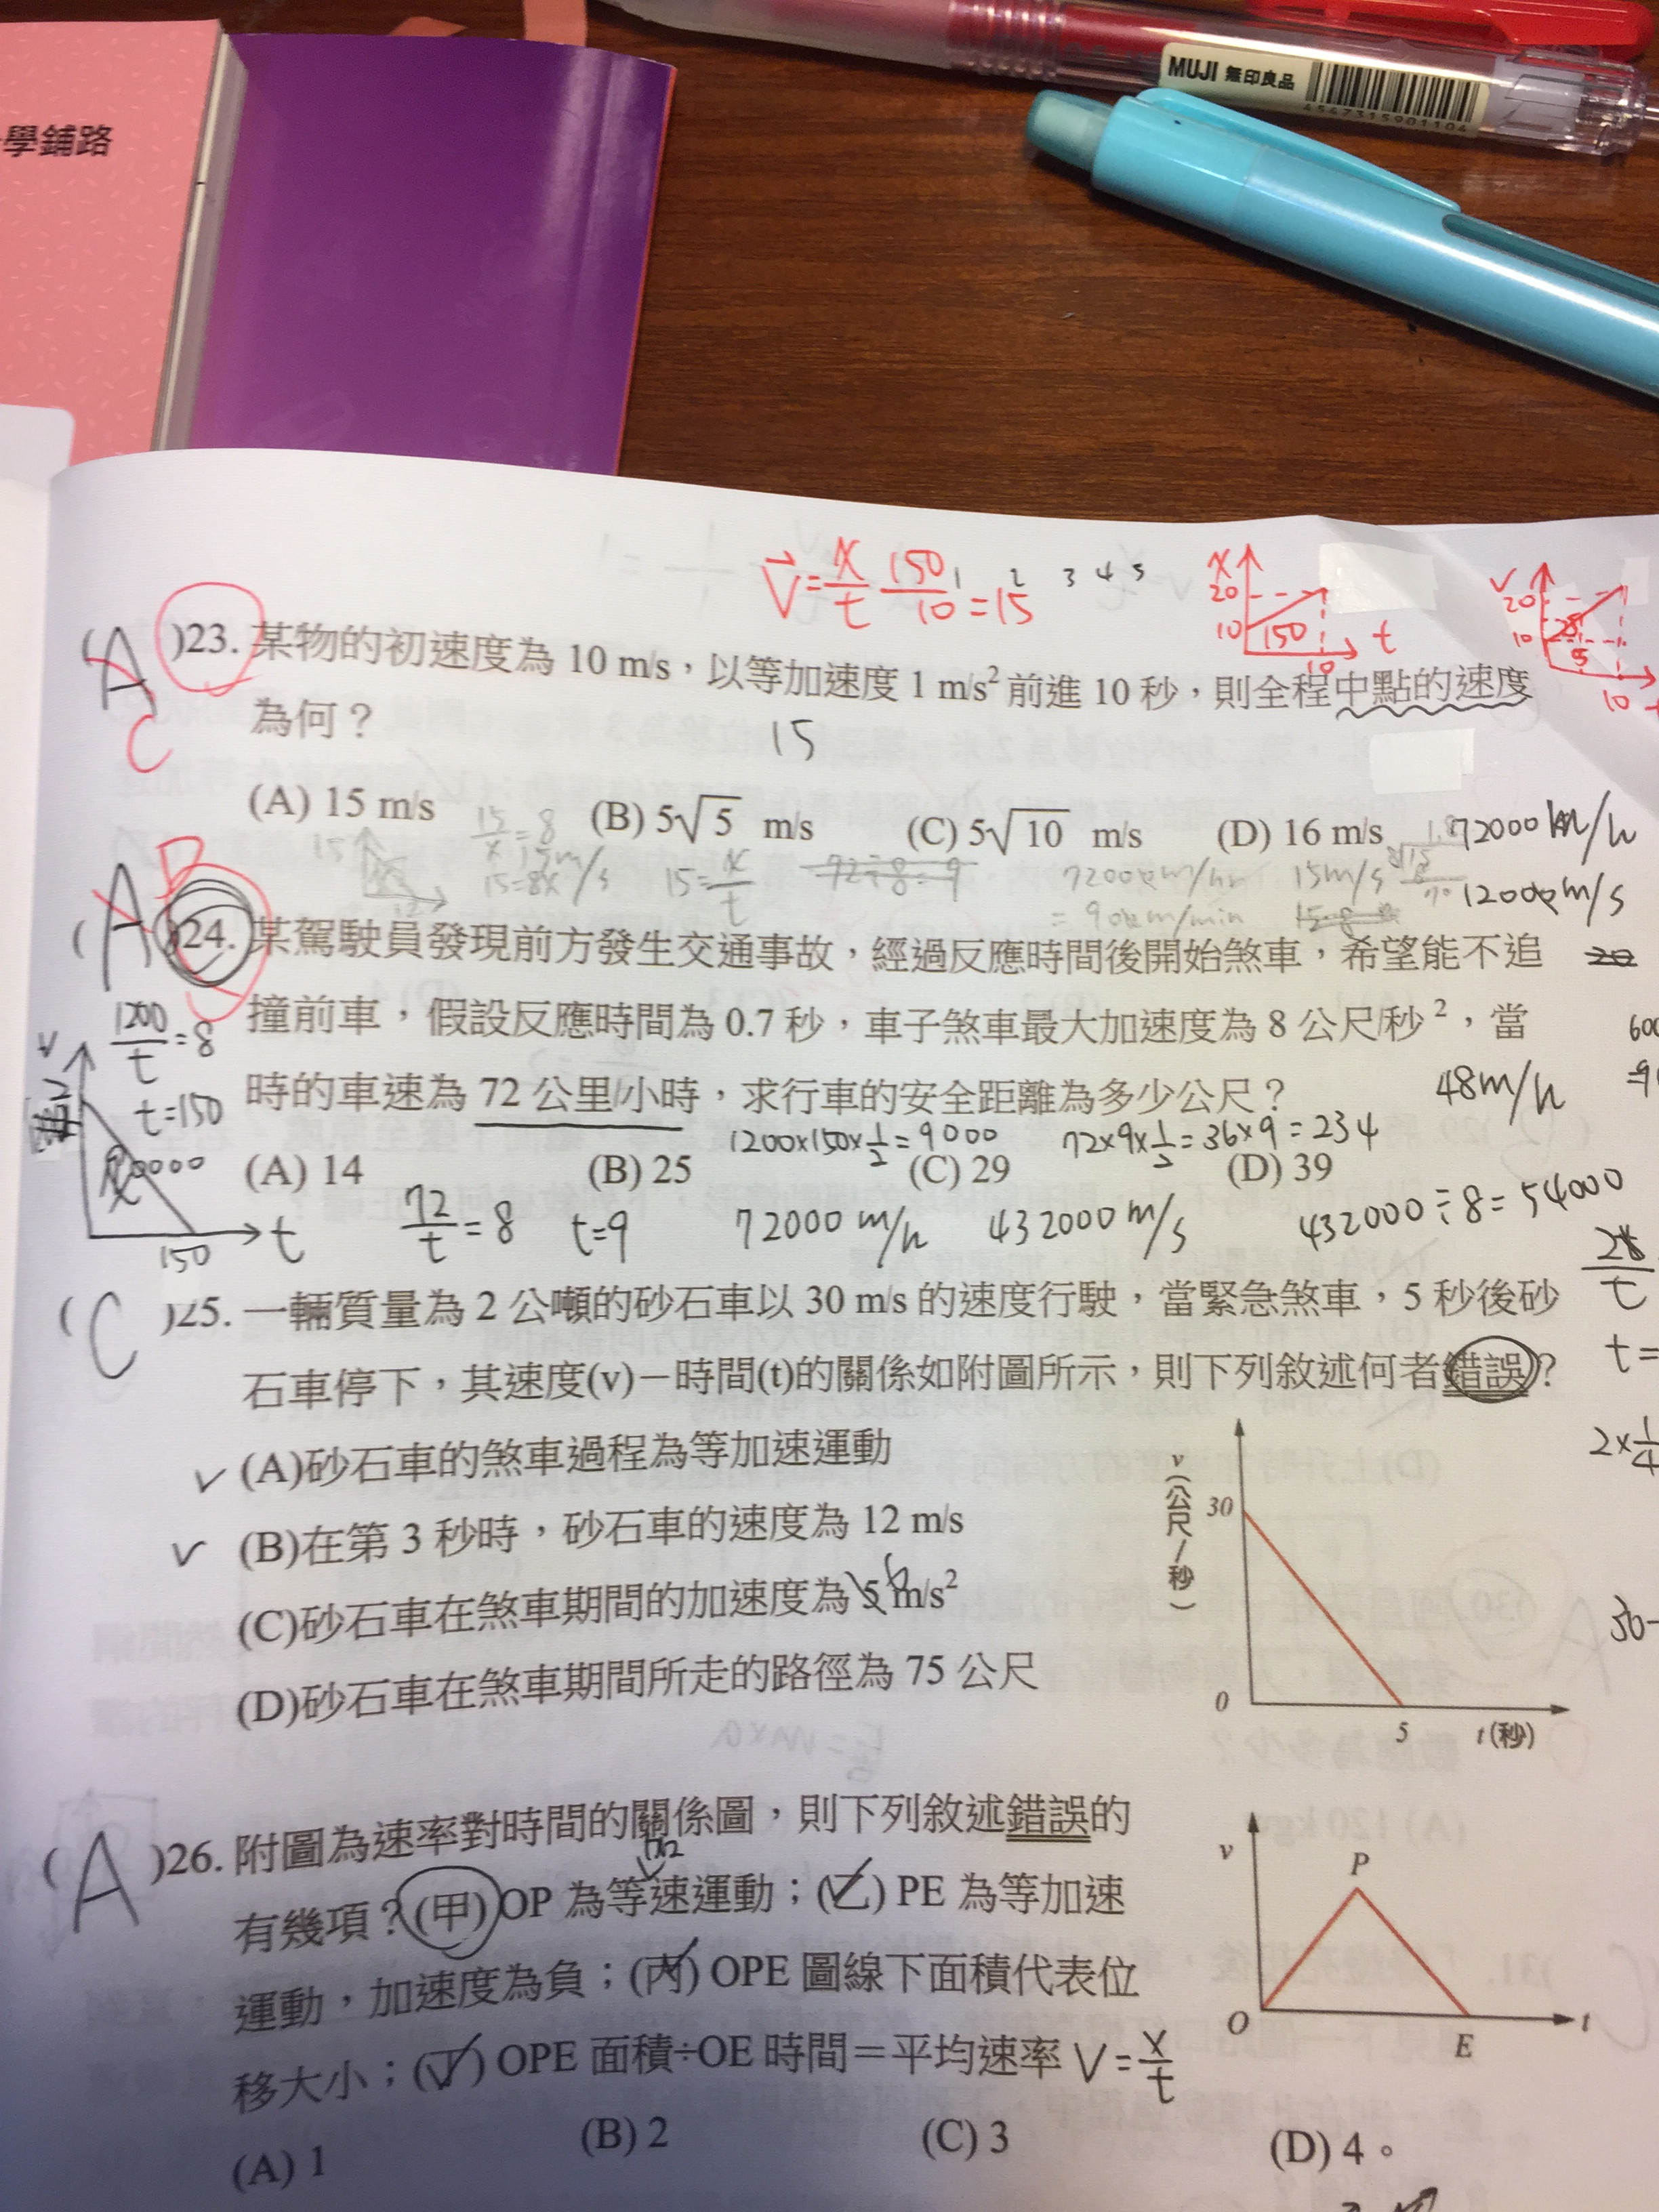 學鋪路
MUJI 無印良品
4547315901104
V=x/t 150/10=15
1 2 3 4 5
x 20 10 150 10 t
v 20 10 5 10
(A)23. 某物的初速度為 10 m/s，以等加速度 1 m/s² 前進 10 秒，則全程中點的速度
C
為何？
15
(A) 15 m/s (B) 5√5 m/s (C) 5√10 m/s (D) 16 m/s
72000 m/h
15/x=8
15=x/t
72÷8=9
15m/s
B
(A)24. 某駕駛員發現前方發生交通事故，經過反應時間後開始煞車，希望能不追
撞前車，假設反應時間為 0.7 秒，車子煞車最大加速度為 8 公尺/秒²，當
1200/t=8
時的車速為 72 公里/小時，求行車的安全距離為多少公尺？
48m/h
t=150
1200×150×1/2=9000 72×9×1/2=36×9=234
(A) 14 (B) 25 (C) 29 (D) 39
v 150 t
72/t=8 t=9 72000 m/h 432000 m/s 432000÷8=54000
(C)25. 一輛質量為 2 公噸的砂石車以 30 m/s 的速度行駛，當緊急煞車，5 秒後砂
石車停下，其速度(v)－時間(t)的關係如附圖所示，則下列敘述何者錯誤？
t=
(A)砂石車的煞車過程為等加速運動
2×1/4
(B)在第 3 秒時，砂石車的速度為 12 m/s
(C)砂石車在煞車期間的加速度為 5 m/s²
6
(D)砂石車在煞車期間所走的路徑為 75 公尺
v（公尺/秒）
30
0 5 t(秒)
30-
(A)26. 附圖為速率對時間的關係圖，則下列敘述錯誤的
有幾項？(甲) OP 為等速運動；(乙) PE 為等加速
加
運動，加速度為負；(丙) OPE 圖線下面積代表位
移大小；(丁) OPE 面積÷OE 時間＝平均速率
V=x/t
v P
O E t
(A) 1 (B) 2 (C) 3 (D) 4。